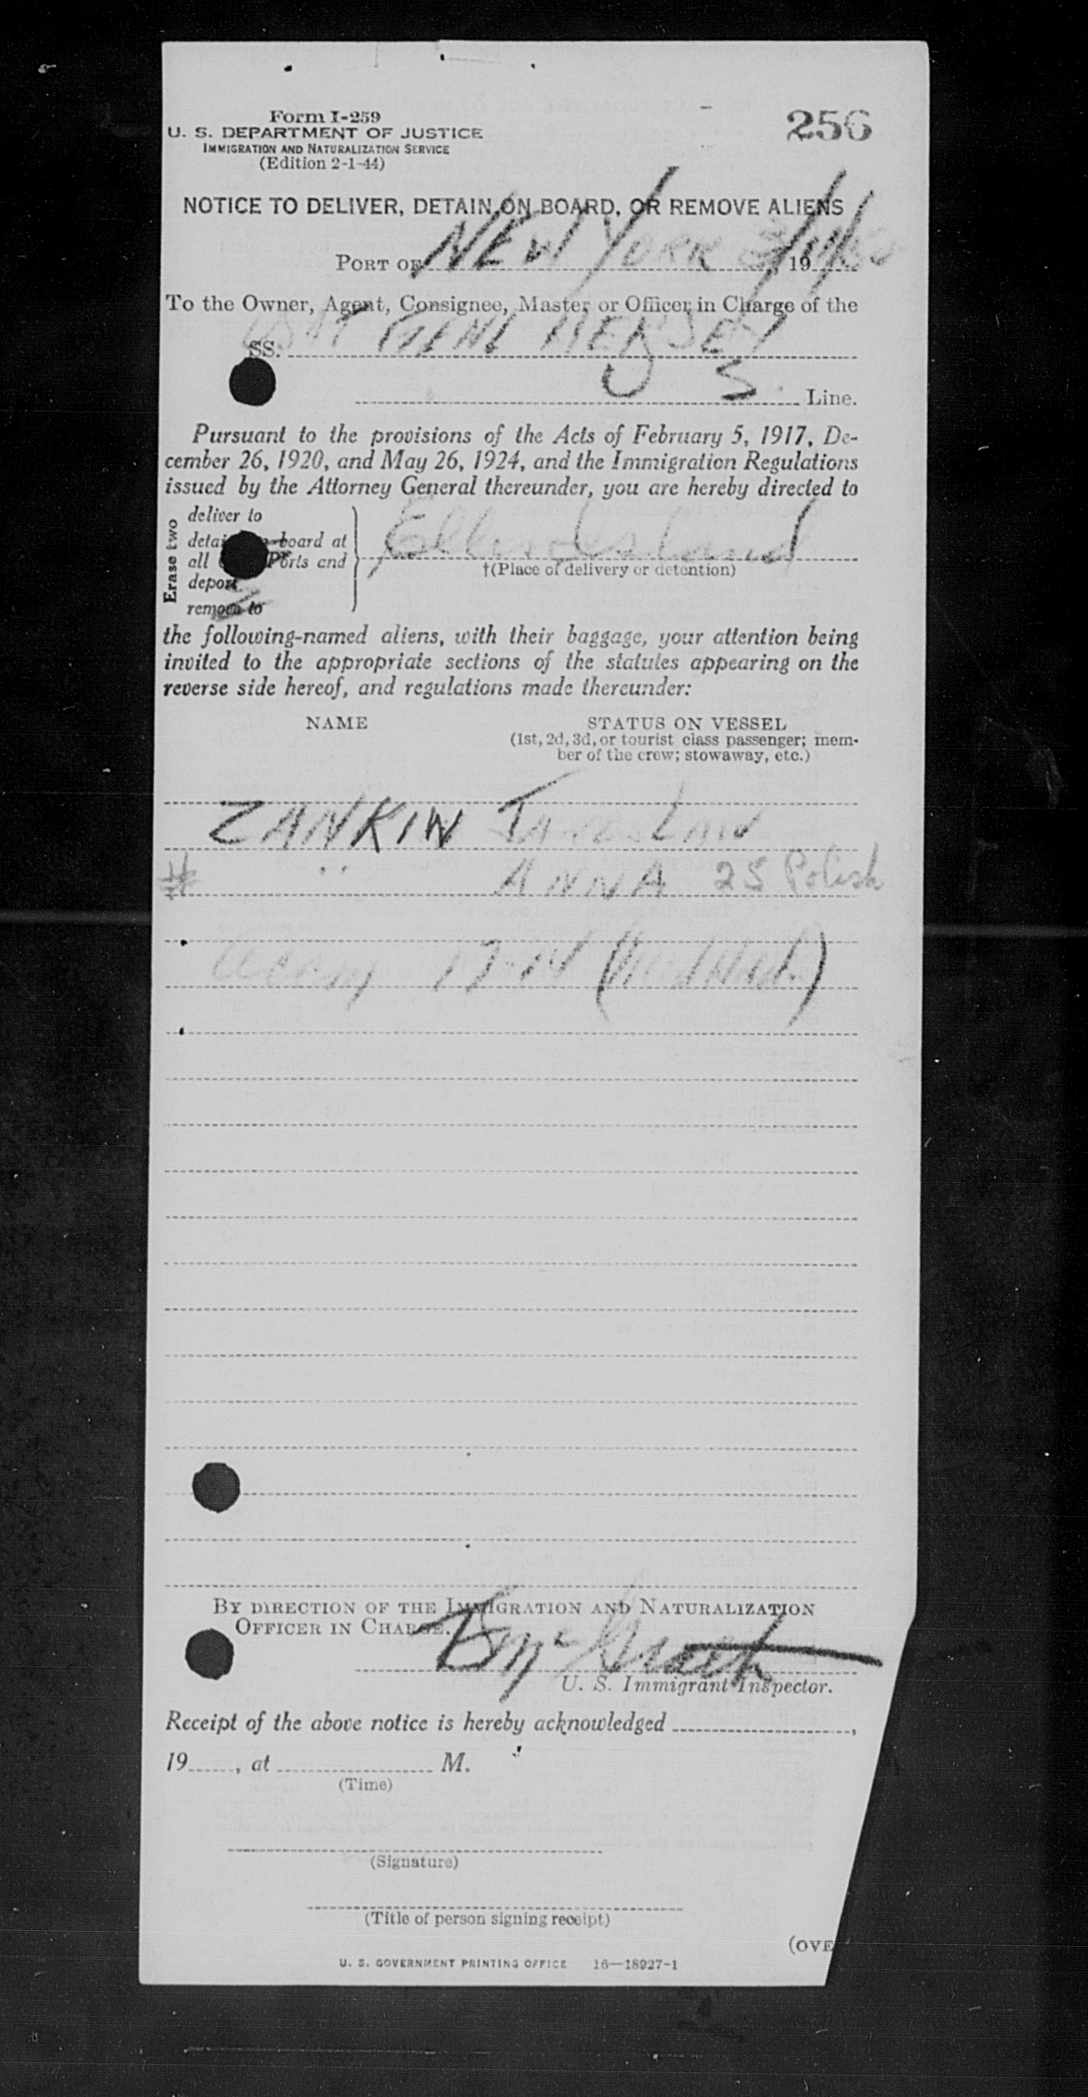 Form I-259
256
U. S. DEPARTMENT OF JUSTICE
IMMIGRATION AND NATURALIZATION SERVICE
(Edition 2-1-44)
NOTICE TO DELIVER, DETAIN ON BOARD, OR REMOVE ALIENS
PORT OF NEW YORK 19
To the Owner, Agent, Consignee, Master or Officer in Charge of the
SS. GENL HERSEY
U S. Line.
Pursuant to the provisions of the Acts of February 5, 1917, De-
cember 26, 1920, and May 26, 1924, and the Immigration Regulations
issued by the Attorney General thereunder, you are hereby directed to
Erase two
deliver to
board at
all Ports and
deport
remove to
Ellis Island
†(Place of delivery or detention)
the following-named aliens, with their baggage, your attention being
invited to the appropriate sections of the statutes appearing on the
reverse side hereof, and regulations made thereunder:
NAME STATUS ON VESSEL
(1st, 2d, 3d, or tourist class passenger; mem-
ber of the crew; stowaway, etc.)
ZANKIW
# " ANNA 25 Polish
BY DIRECTION OF THE IMMIGRATION AND NATURALIZATION
OFFICER IN CHARGE.
McGrath
U. S. Immigrant Inspector.
Receipt of the above notice is hereby acknowledged ,
19 , at M.
(Time)
(Signature)
(Title of person signing receipt)
(OVE
U. S. GOVERNMENT PRINTING OFFICE 16—18927-1